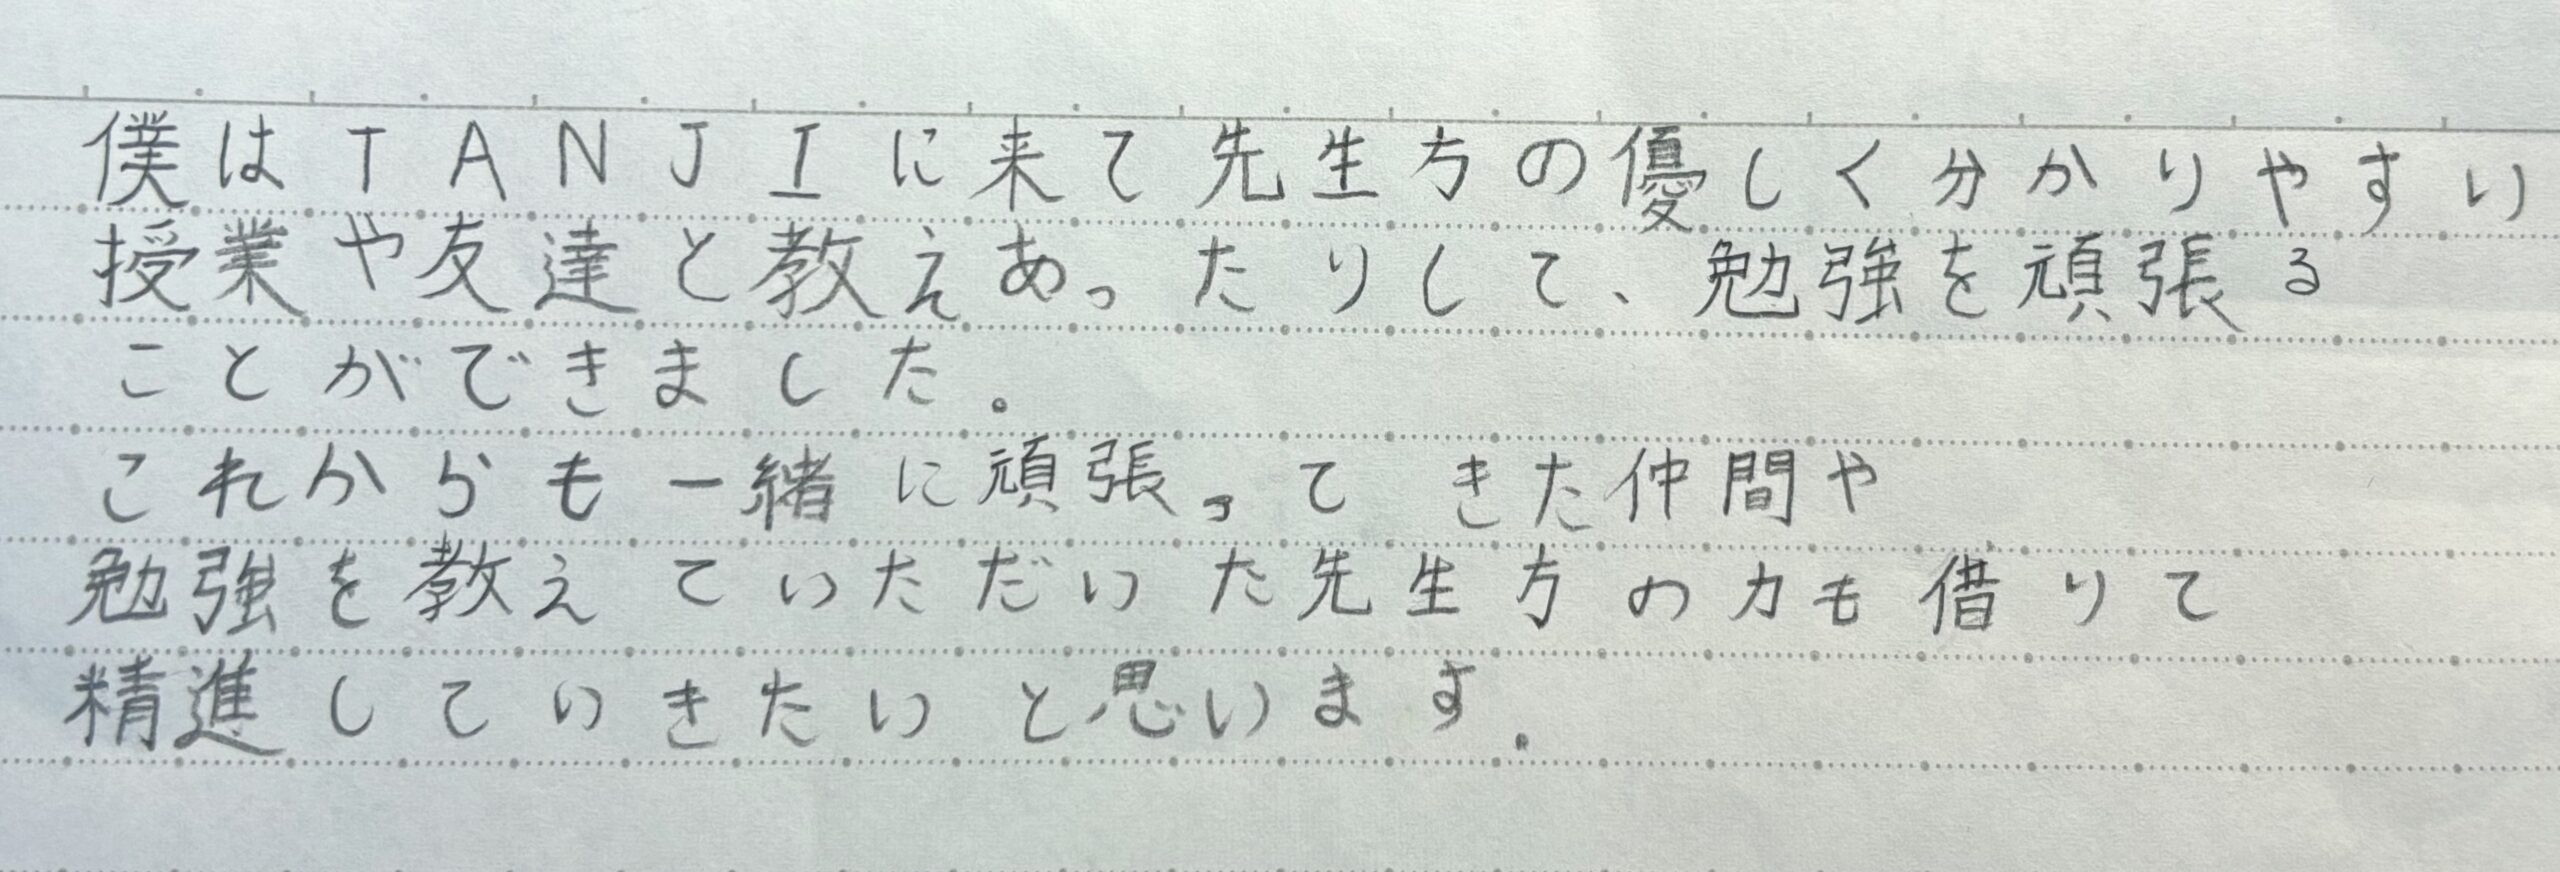 僕はTANJIに来て先生方の優しく分かりやすい
授業や友達と教えあったりして、勉強を頑張る
ことができました。
これからも一緒に頑張ってきた仲間や
勉強を教えていただいた先生方の力も借りて
精進していきたいと思います.